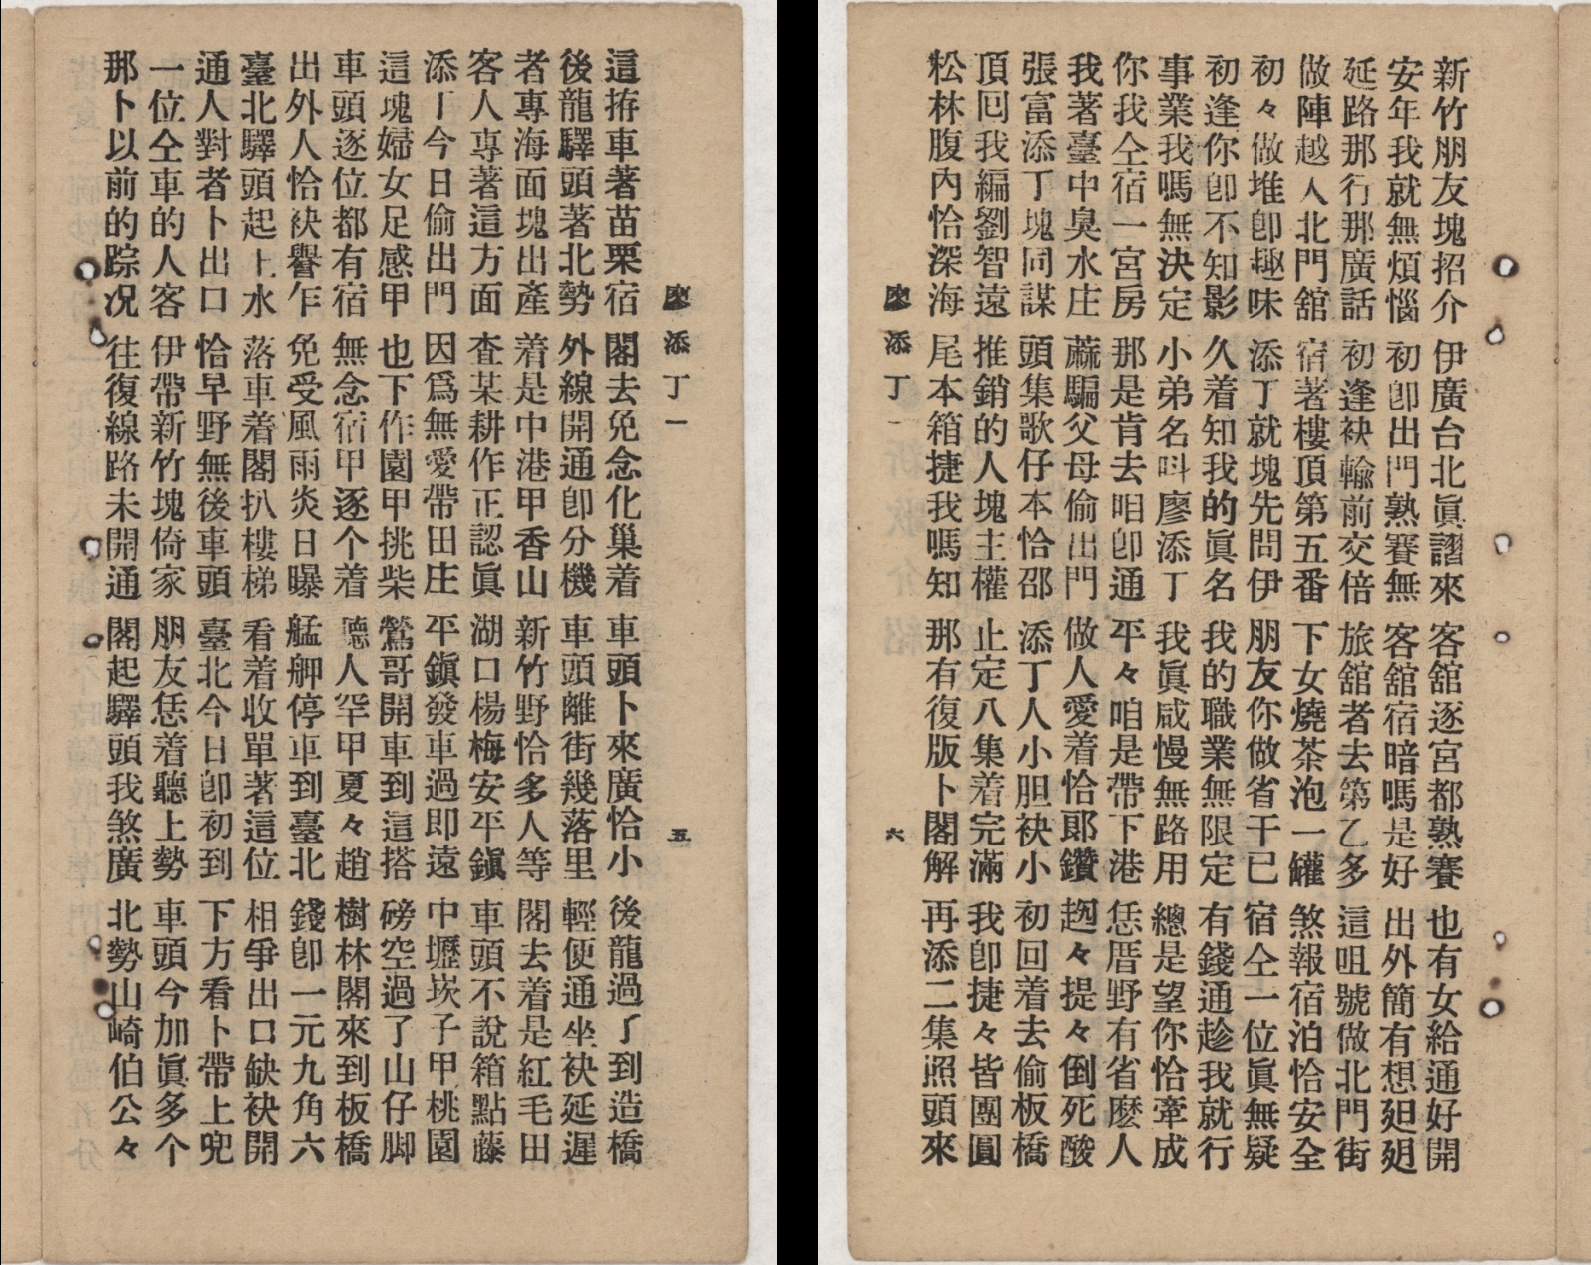 廖添丁一 五
這拵車著苗栗宿 閣去免念化巢着 車頭卜來廣恰小 後龍過了到造橋
後龍驛頭著北勢 外線開通卽分機 車頭離街幾落里 輕便通坐袂延遲
者專海面塊出產 着是中港甲香山 新竹野恰多人等 閣去着是紅毛田
客人專著這方面 査某耕作正認眞 湖口楊梅安平鎭 車頭不說箱點藤
添丁今日偷出門 因爲無愛帶田庄 平鎭發車過即遠 中壢崁子甲桃園
這塊婦女足感甲 也下作園甲挑柴 鶯哥開車到這搭 磅空過了山仔脚
車頭逐位都有宿 無念宿甲逐个着 聽人罕甲夏々趙 樹林閣來到板橋
出外人恰袂礐乍 免受風雨炎日曝 艋舺停車到臺北 錢卽一元九角六
臺北驛頭起上水 落車着閣扒樓梯 看着收單著這位 相爭出口缺袂開
通人對者卜出口 恰早野無後車頭 臺北今日卽初到 下方看卜帶上兜
一位仝車的人客 伊帶新竹塊倚家 朋友恁着聽上勢 車頭今加眞多个
那卜以前的踪况 往復線路未開通 閣起驛頭我煞廣 北勢山崎伯公々
新竹朋友塊招介 伊廣台北眞謵來 客舘逐宮都熟賽 也有女給通好開
安年我就無煩惱 初卽出門熟賽無 客舘宿暗嗎是好 出外簡有想𨑨迌
延路那行那廣話 初逢袂輸前交倍 旅舘者去第乙多 這咀號做北門街
做陣越人北門舘 宿著樓頂第五番 下女燒茶泡一罐 煞報宿泊恰安全
初々做堆卽趣味 添丁就塊先問伊 朋友你做省干已 宿仝一位眞無疑
初逢你卽不知影 久着知我的眞名 我的職業無限定 有錢通趁我就行
事業我嗎無決定 小弟名叫廖添丁 我眞咸慢無路用 總是望你恰牽成
你我仝宿一宮房 那是肯去咱卽通 平々咱是帶下港 恁厝野有省麽人
我著臺中臭水庄 蔴騙父母偷出門 做人愛着恰郞鑽 趔々提々倒死酸
張富添丁塊同謀 頭集歌仔本恰邵 添丁人小胆袂小 初回着去偷板橋
頂囘我編劉智遠 推銷的人塊主權 止定八集着完滿 我卽捷々皆團圓
松林腹內恰深海 尾本箱捷我嗎知 那有復版卜閣解 再添二集照頭來
廖添丁一 六